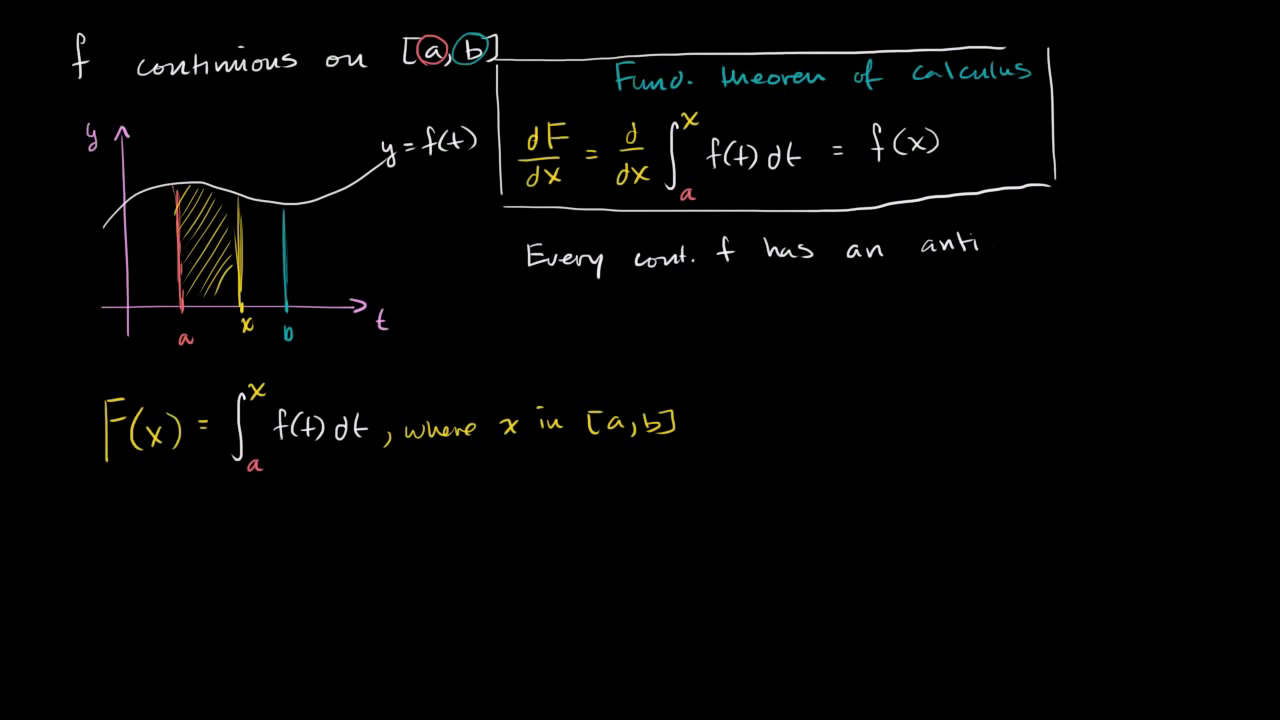 f continuous on [a, b]
Fund. theorem of calculus
dF/dx = d/dx ∫_a^x f(t) dt = f(x)
Every cont. f has an anti
y
y = f(t)
a
x
b
t
F(x) = ∫_a^x f(t) dt, where x in [a, b]